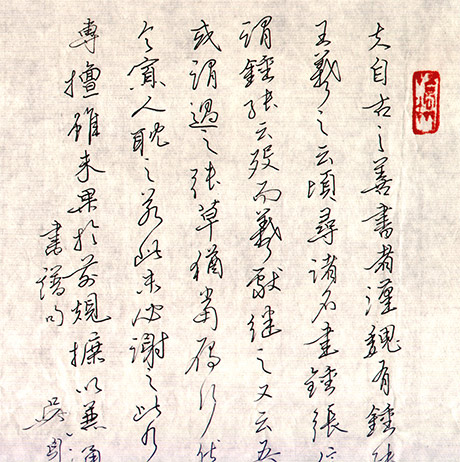 夫自古之善書者漢魏有鍾張
王羲之云頃尋諸名書鍾張信
謂鍾張云歿而羲獻继之又云吾
或謂過之張草猶當雁行然
令寡人耽之若此未必謝之此乃
專擅雖未果於前規摭以兼通
書譜句
吳